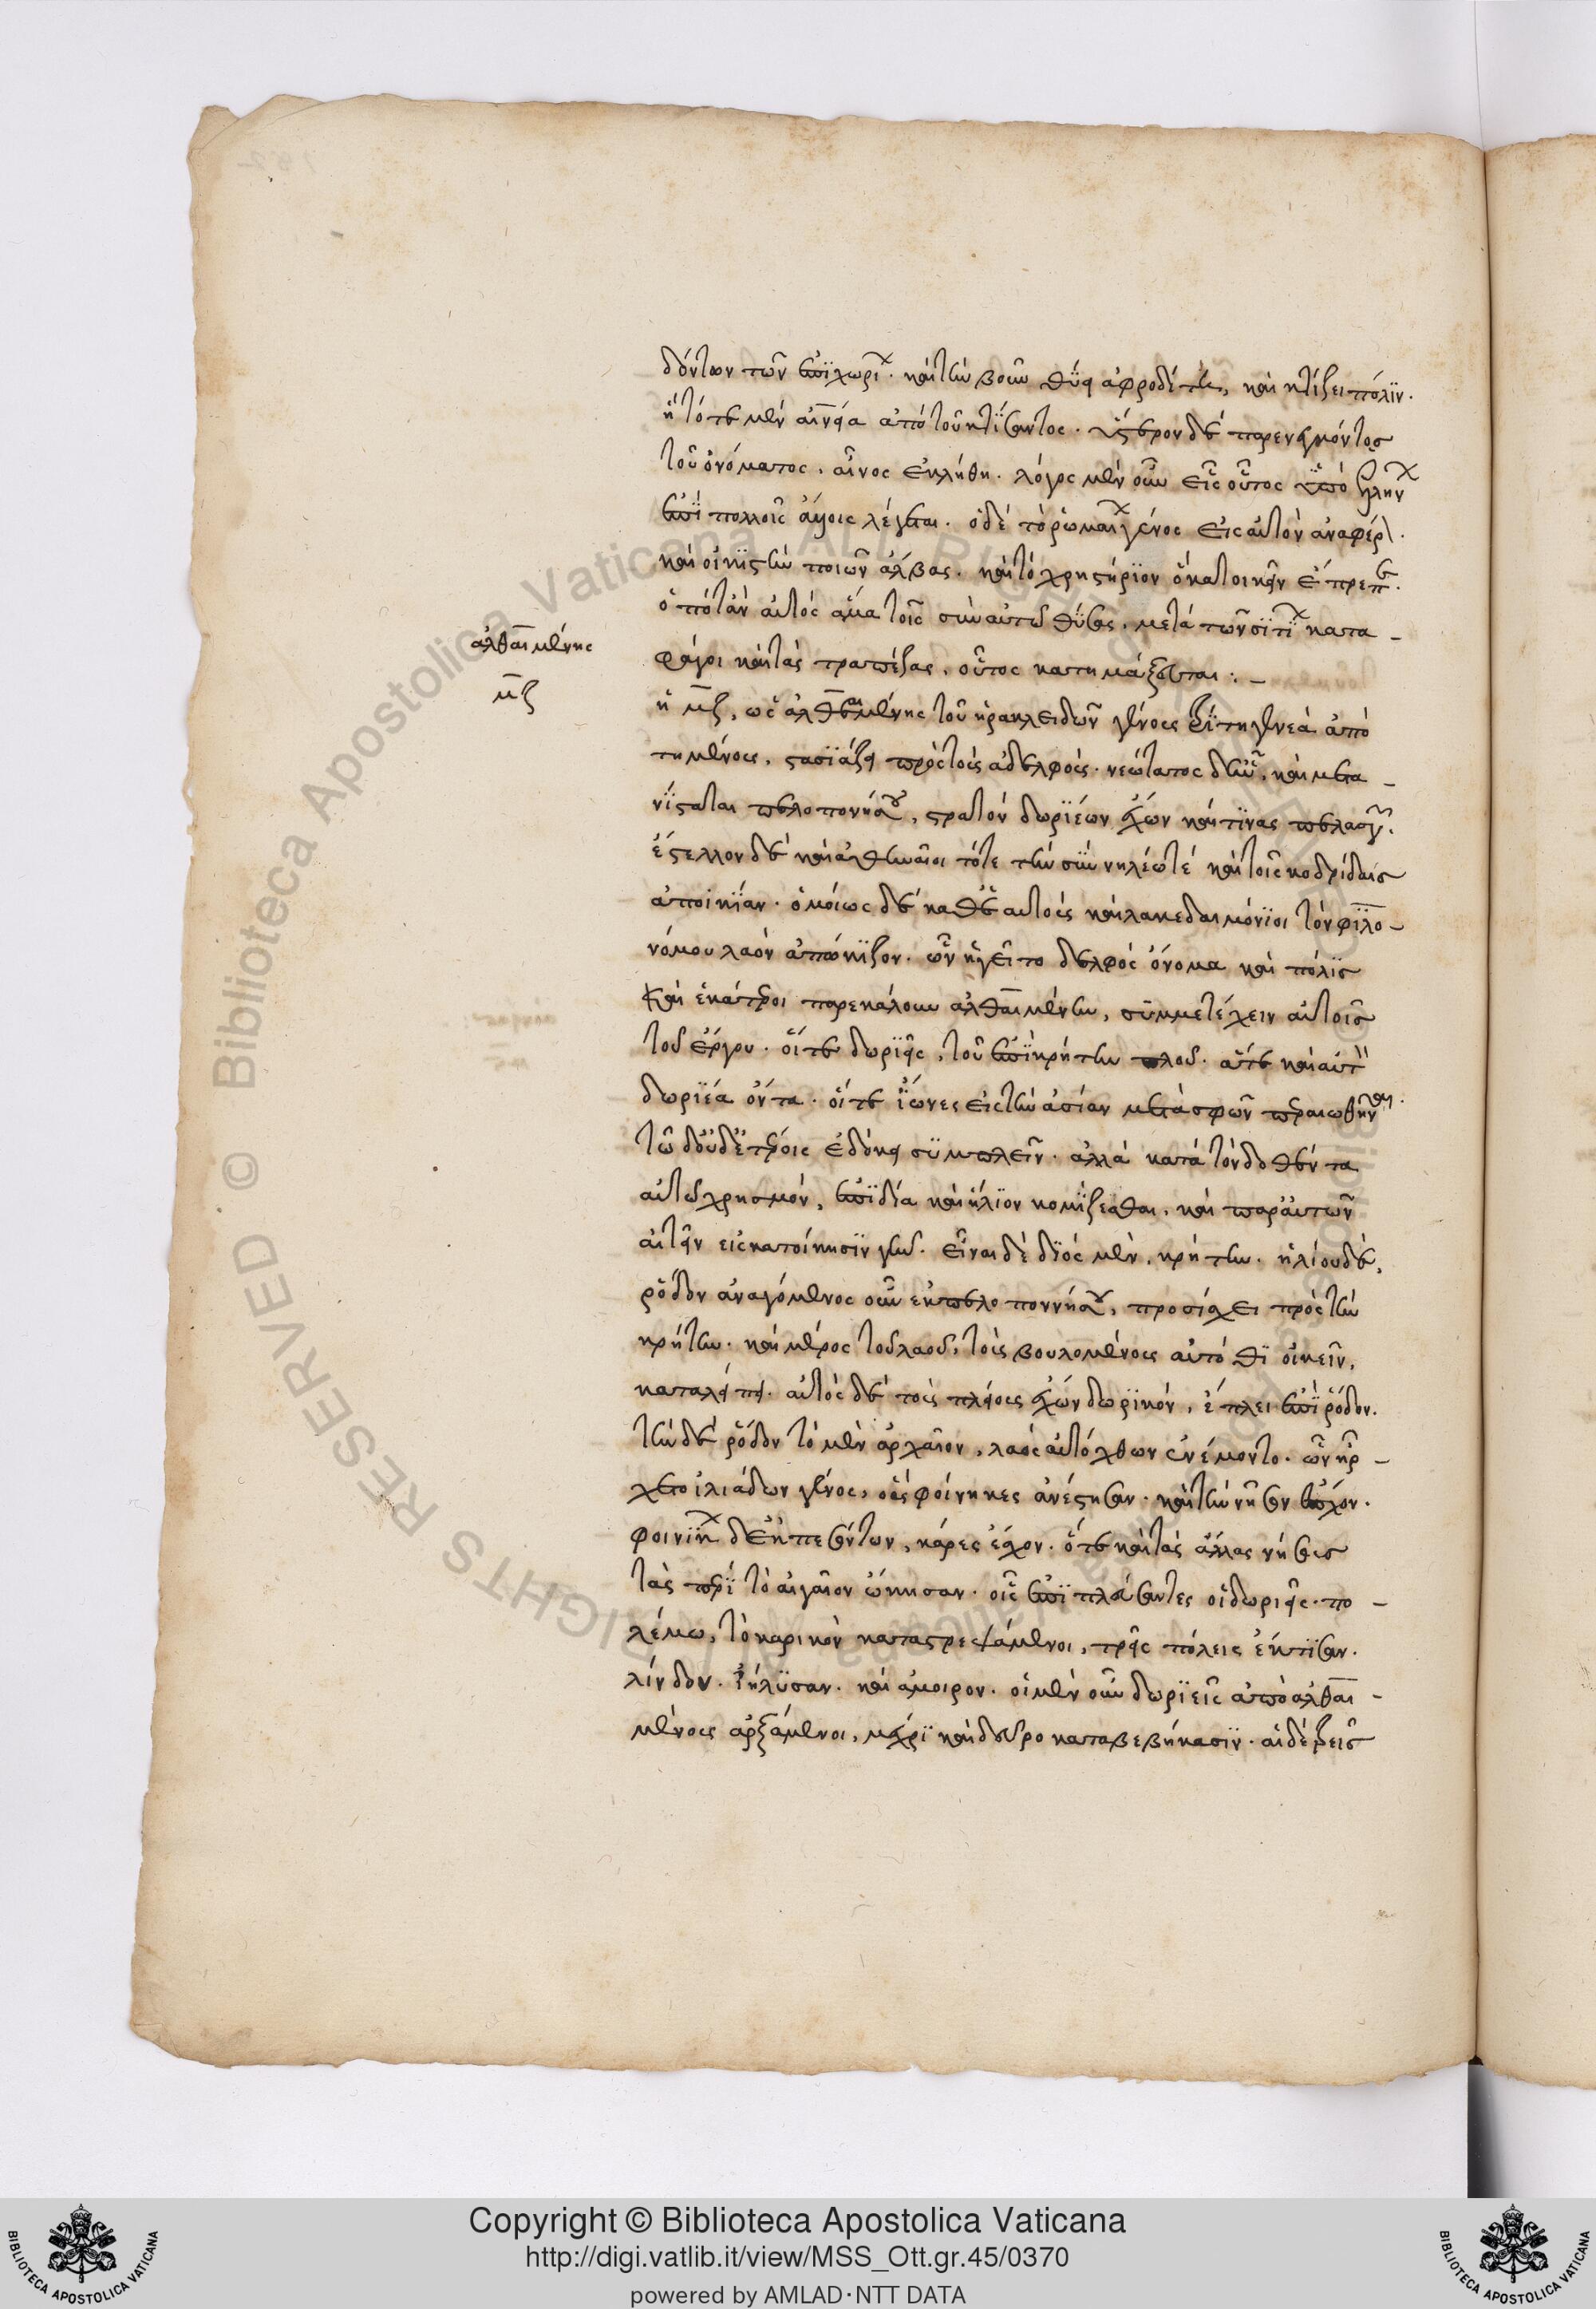 δόντων τῶν ἐπιχωρί. καὶ τὴν βοῦν θύει ἀφροδίτη, καὶ κτίζει πόλιν.
ἣ τότε μὲν αἰνεία ἀπὸ τοῦ κτίσαντος. ὕστερον δὲ παρεγκόντος
τοῦ ὀνόματος, αἶνος ἐκλήθη. λόγος μὲν οὖν εἷς οὗτος ὑπὸ ἑλλην
ἐπὶ πολλοῖς ἄλλοις λέγεται. ὁ δὲ τὸ ῥωμαί γένος εἰς αὐτὸν ἀναφέρ.
καὶ οἰκιστὴν ποιῶν ἄλβας. καὶ τὸ χρηστήριον ὃ κατοικεῖν ἔτρεπε.
ὁπόταν αὐτὸς ἅμα τοῖς σὺν αὐτῷ θύσας, μετὰ τῶν σιτί κατα-
φάγοι καὶ τὰς τραπέζας, οὗτος κατημάξευται:-
αλθαιμένης
μζ
ἡ μζ, ὡς ἀλθαιμένης τοῦ ἡρακλειδῶν γένους τρίτη γενεᾷ ἀπὸ
τημένους, στασιάζει πρὸς τοὺς ἀδελφούς. νεώτατος δ' ἦν, καὶ μετα-
νίσταται πελοποννήσου, στρατὸν δωριέων ἔχων καί τινας πελασγ.
ἔστελλον δὲ καὶ ἀθηναῖοι τότε τὴν σὺν νηλέῳ τε καὶ τοῖς κοδρίδαις
ἀποικίαν. ὁμοίως δὲ καθ' αὑτοὺς καὶ λακεδαιμόνιοι τὸν φιλο-
νόμου λαὸν ἀπῴκιζον. ὧν ἡγεῖτο δελφὸς ὄνομα καὶ πόλις
καὶ ἑκάτεροι παρεκάλουν ἀλθαιμένην, συμμετέχειν αὐτοῖς
τοῦ ἔργου. οἵ τε δωριεῖς, τοῦ ἐπὶ κρήτην πλοῦ. ἅτε καὶ αὐτ
δωριέα ὄντα. οἵ τε ἴωνες εἰς τὴν ἀσίαν μετὰ σφῶν περαιωθῆναι.
τῷ δ' οὐδετέροις ἐδόκει συμπλεῖν. ἀλλὰ κατὰ τὸν δοθέντα
αὐτῷ χρησμὸν, ἐπὶ δία καὶ ἥλιον κομίζεσθαι, καὶ παρ' αὐτῶν
αἰτεῖν εἰς κατοίκησιν γῆν. εἶναι δὲ διὸς μὲν, κρήτην. ἡλίου δὲ,
ῥόδον ἀναγόμενος οὖν ἐκ πελοποννήσου, προσίσχει πρὸς τὴν
κρήτην. καὶ μέρος τοῦ λαοῦ, τοὺς βουλομένους αὐτόθι οἰκεῖν,
καταλείπει. αὐτὸς δὲ τοὺς πλείους ἔχων δωρικὸν, ἔπλει ἐπὶ ῥόδον.
τὴν δὲ ῥόδον τὸ μὲν ἀρχαῖον, λαὸς αὐτόχθων ἐνέμοντο. ὧν ἦρ-
χε τὸ ἱλιάδων γένος, οὓς φοίνηκες ἀνέστησαν. καὶ τὴν νῆσον ἔσχον.
φοινίκ δ' ἐκπεσόντων, κάρες ἔσχον. ὅτε καὶ τὰς ἄλλας νήσους
τὰς περὶ τὸ αἰγαῖον ᾤκησαν. οἷς ἐπιπλεύσαντες οἱ δωριεῖς. πο-
λέμῳ, τὸ καρικὸν καταστρεψάμενοι, τρεῖς πόλεις ἔκτισαν.
λίνδον. ἰηλυσὰν. καὶ άμοιρον. οἱ μὲν οὖν δωριεῖς ἀπὸ ἀλθαι-
μένους ἀρξάμενοι, μέχρι καὶ δεῦρο καταβεβήκασιν. αἱ δὲ τρεῖς
Copyright © Biblioteca Apostolica Vaticana
http://digi.vatlib.it/view/MSS_Ott.gr.45/0370
powered by AMLAD·NTT DATA